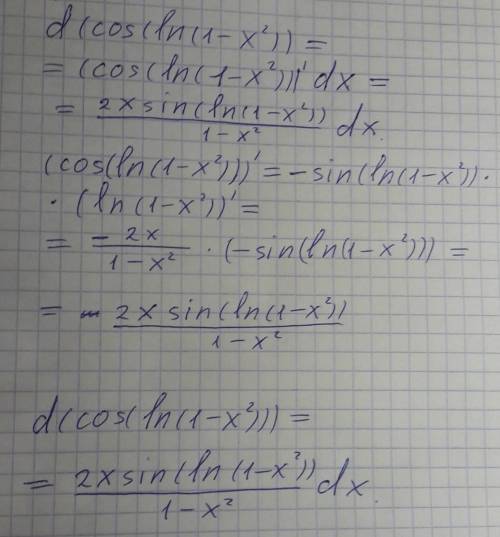 d(cos(ln(1-x²)) =
= (cos(ln(1-x²)))' dx =
= \frac{2x sin(ln(1-x²))}{1-x²} dx.
(cos(ln(1-x²)))' = -sin(ln(1-x²)) ·
· (ln(1-x²))' =
= \frac{-2x}{1-x²} · (-sin(ln(1-x²))) =
= - \frac{2x sin(ln(1-x²))}{1-x²}
d(cos(ln(1-x²))) =
= \frac{2x sin(ln(1-x²))}{1-x²} dx.